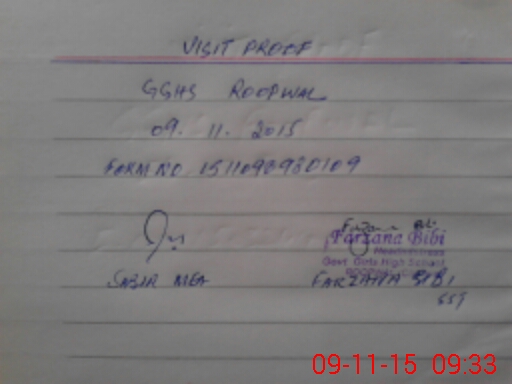 VISIT PROOF
GGHS ROOPWAL
09. 11. 2015
FORM NO 15110939
Farzana Bibi
Farzana Bibi
Headmistress
Govt. Girls High School
SABIR MEA
FARZANA BIBI
SST
09-11-15 09:33